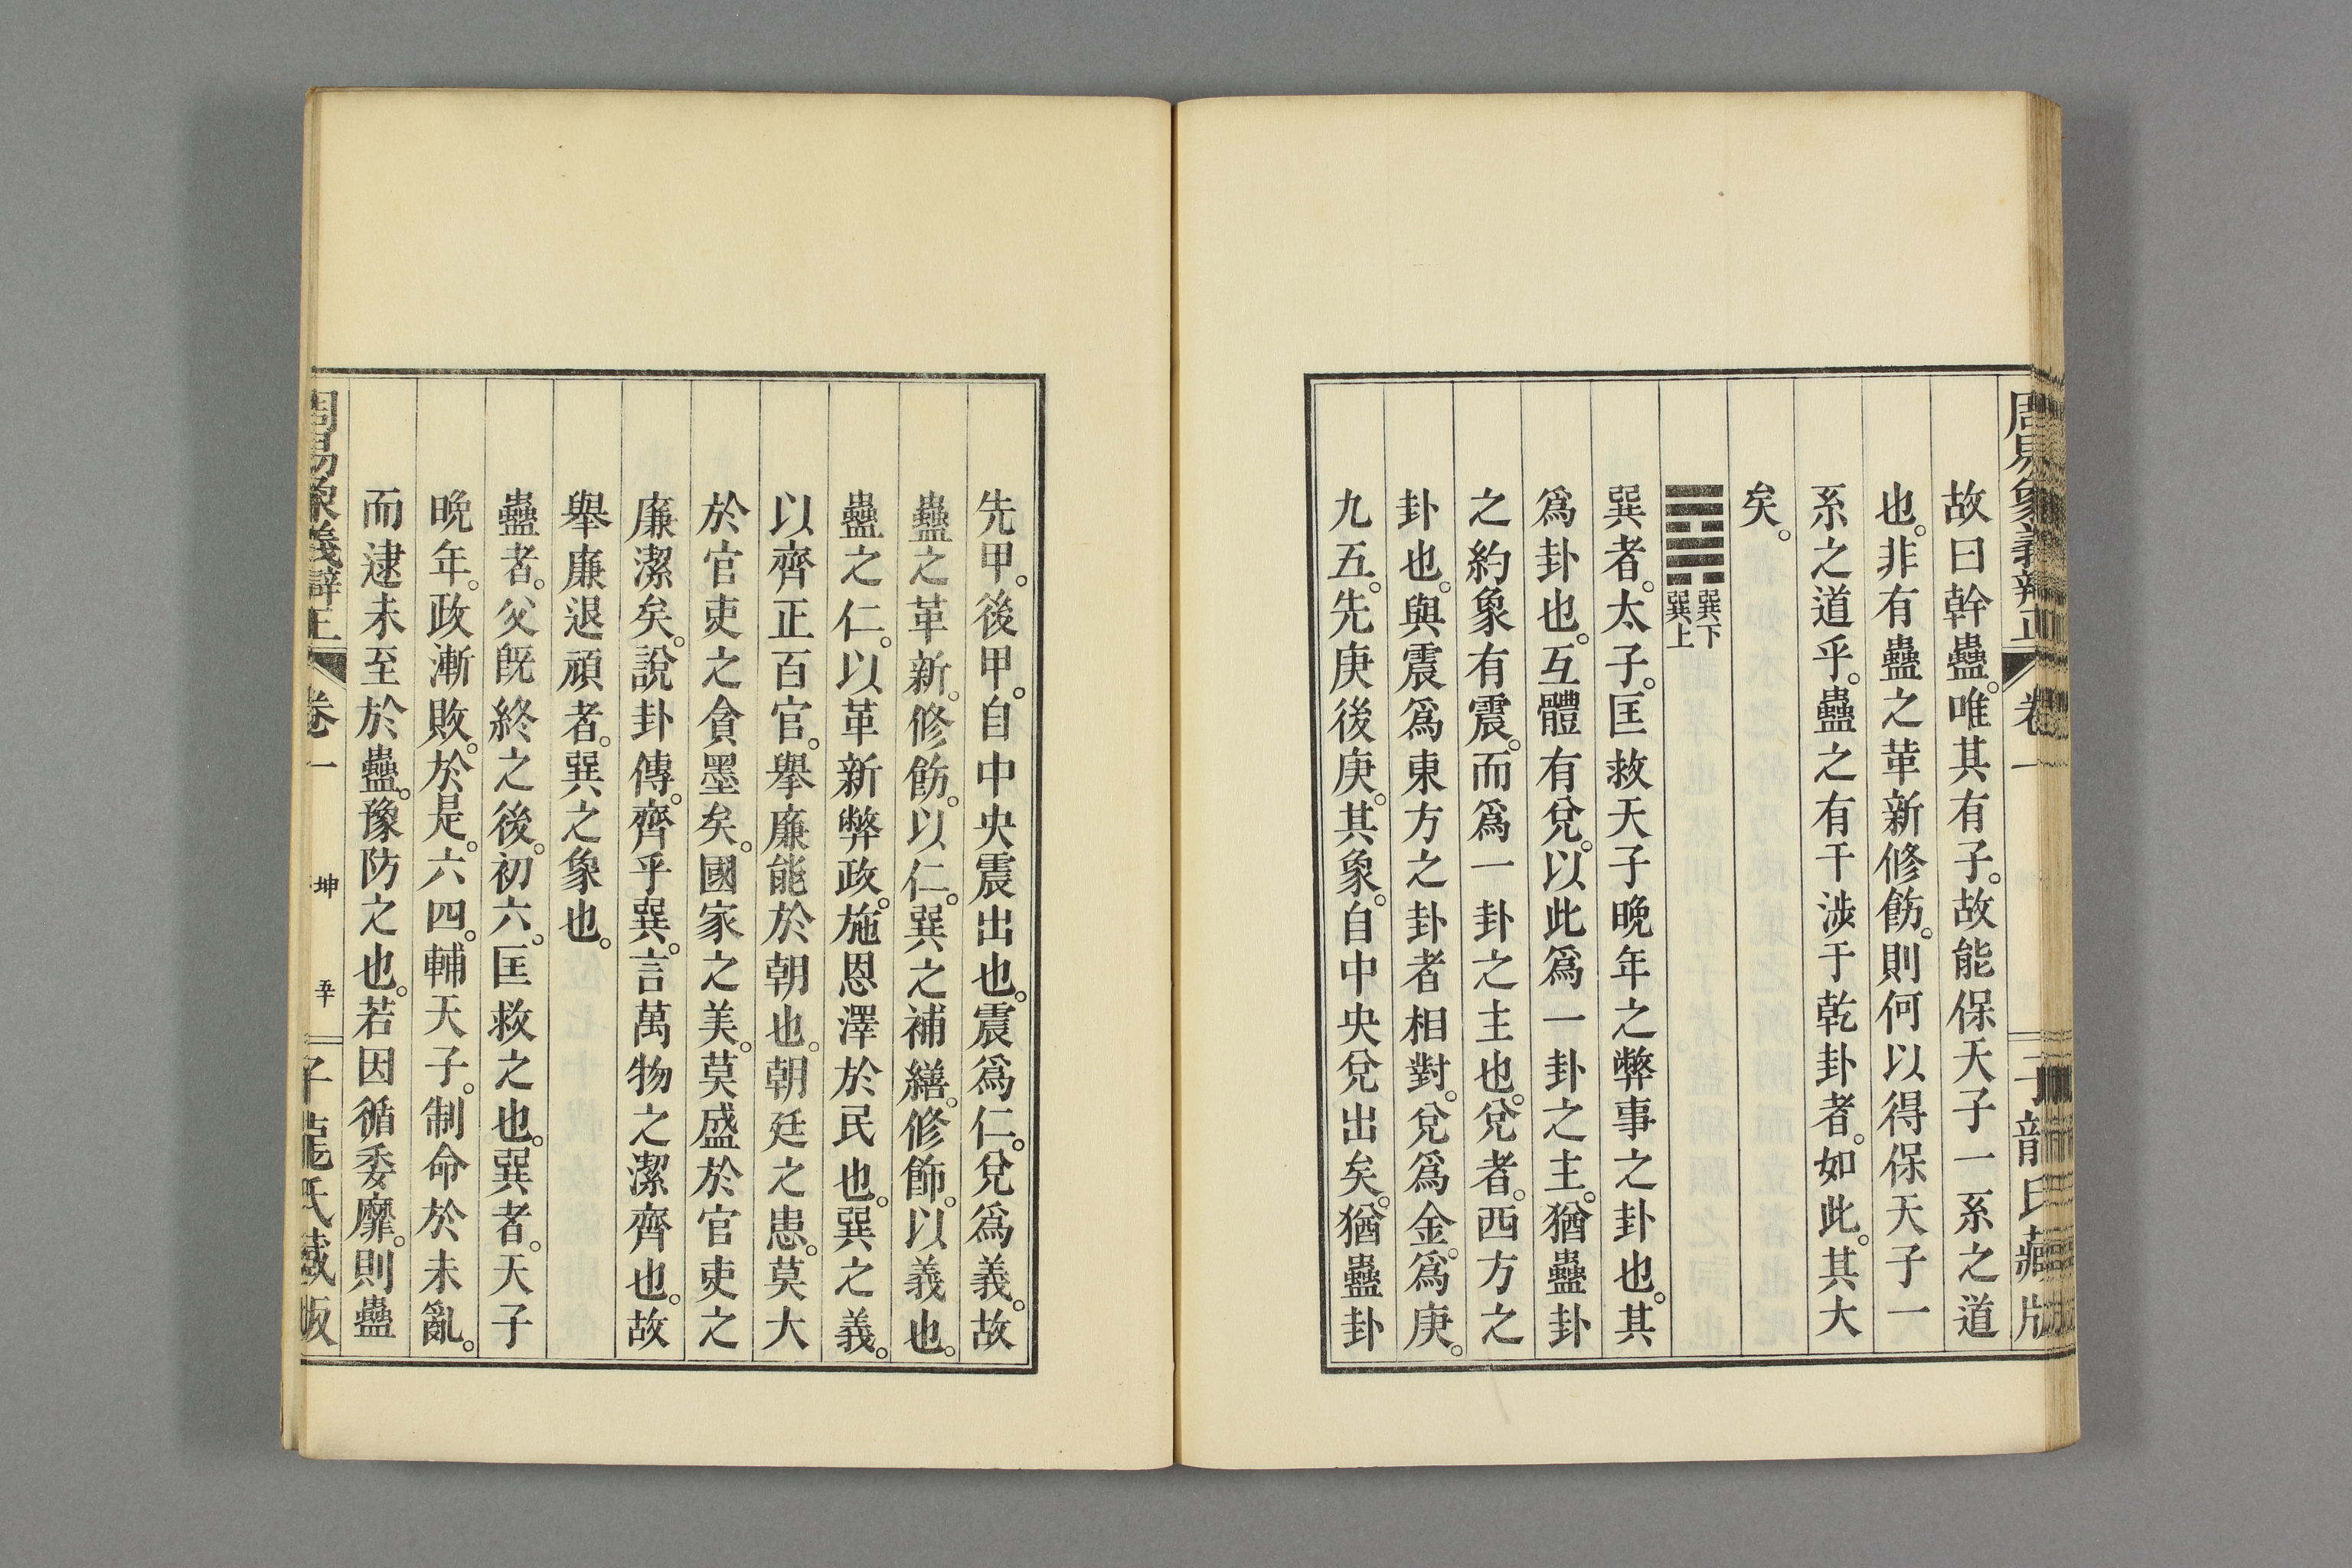 周易象義辯正 卷一 子龍氏藏版
故曰幹蠱。唯其有子。故能保天子一系之道
也。非有蠱之革新修飭。則何以得保天子一
系之道乎。蠱之有干涉于乾卦者。如此。其大
矣。
巽下
巽上
巽者。太子。匡救天子晚年之弊事之卦也。其
爲卦也。互體有兌。以此爲一卦之主。猶蠱卦
之約象有震。而爲一卦之主也。兌者。西方之
卦也。與震爲東方之卦者相對。兌爲金。爲庚。
九五。先庚後庚。其象。自中央兌出矣。猶蠱卦
先甲。後甲。自中央震出也。震爲仁。兌爲義。故
蠱之革新。修飭。以仁。巽之補繕。修飾。以義也。
蠱之仁。以革新弊政。施恩澤於民也。巽之義。
以齊正百官。擧廉能於朝也。朝廷之患。莫大
於官吏之貪墨矣。國家之美。莫盛於官吏之
廉潔矣。說卦傳。齊乎巽。言萬物之潔齊也。故
舉廉退頑者。巽之象也。
蠱者。父既終之後。初六。匡救之也。巽者。天子
晚年。政漸敗。於是。六四。輔天子。制命於未亂。
而逮未至於蠱。豫防之也。若因循委靡。則蠱
周易象義辯正 卷一 坤 五十 子龍氏藏版